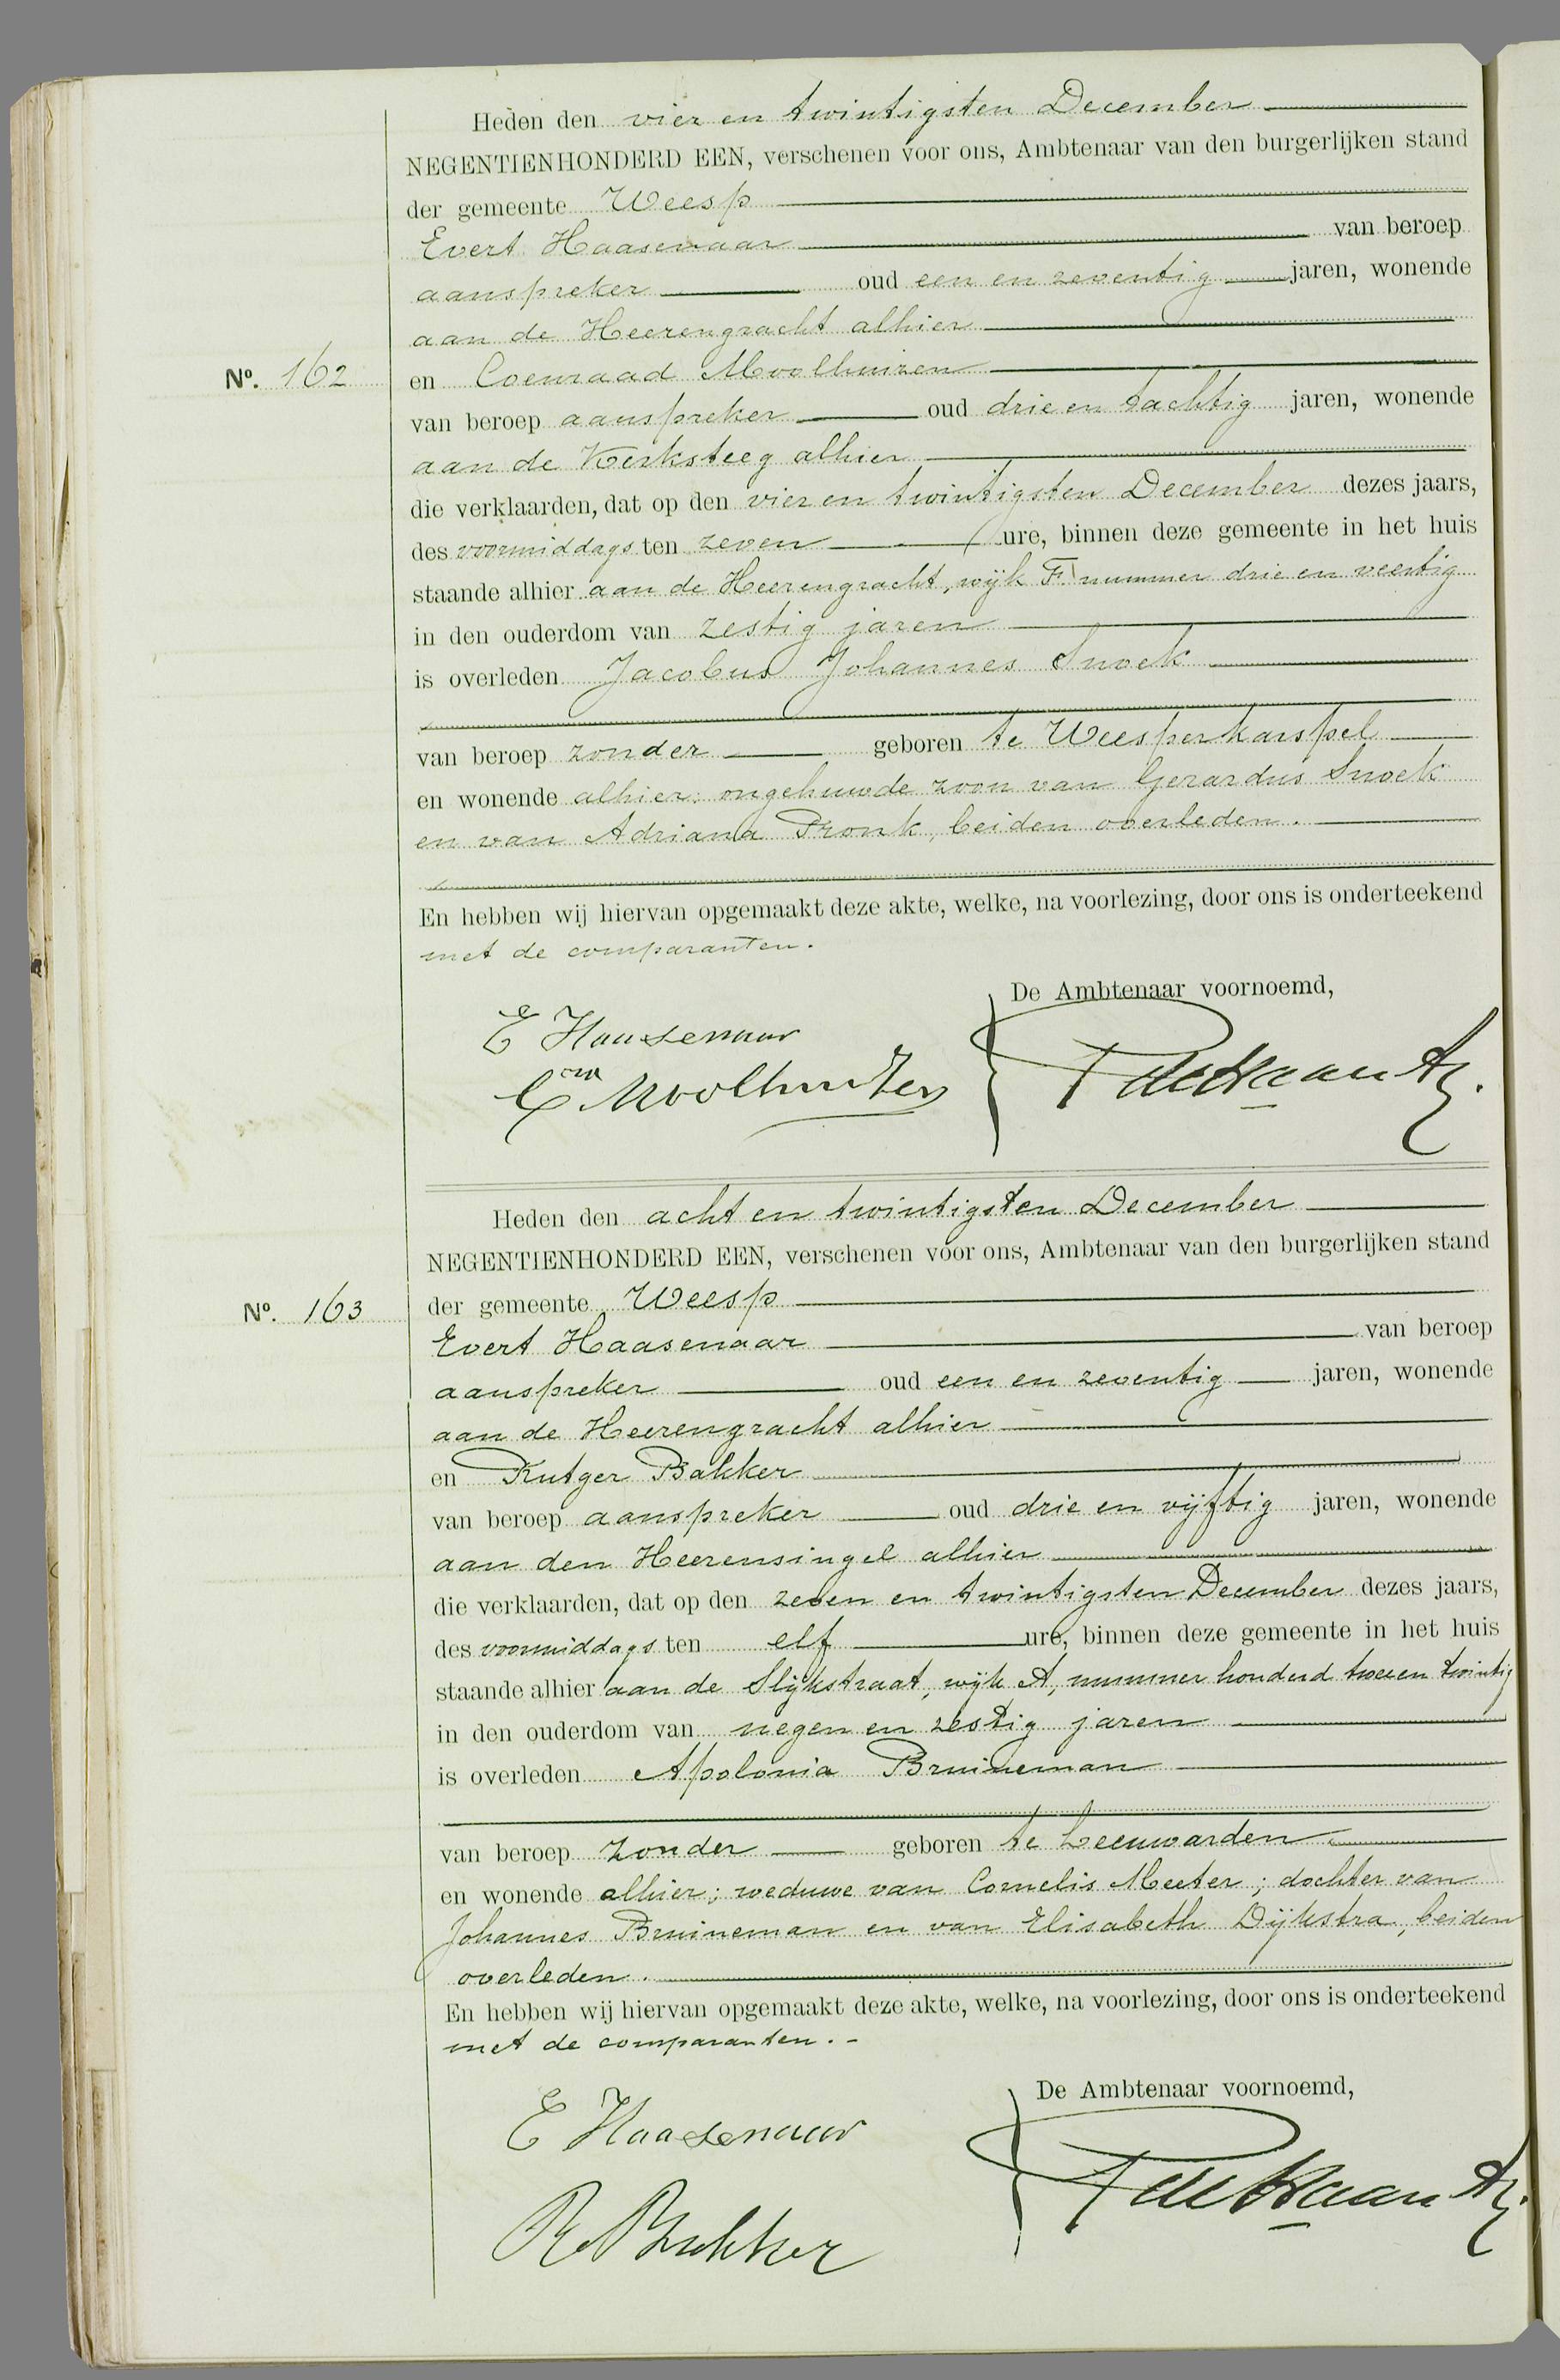 Heden den vier en twintigsten December
NEGENTIENHONDERD EEN, verschenen voor ons, Ambtenaar van den burgerlijken stand
der gemeente Weesp
Evert Haasenaar van beroep
aanspreker oud een en zeventig jaren, wonende
aan de Heerengracht alhier
Nº. 162
en Coenraad Moolhuizen
van beroep aanspreker oud drie en tachtig jaren, wonende
aan de Kerksteeg alhier
die verklaarden, dat op den vier en twintigsten December dezes jaars,
des voormiddags ten zeven ure, binnen deze gemeente in het huis
staande alhier aan de Heerengracht, wijk F. nummer drie en veertig
in den ouderdom van zestig jaren
is overleden Jacobus Johannes Snoek
van beroep zonder geboren te Weesperkarspel
en wonende alhier; ongehuwde zoon van Gerardus Snoek
en van Adriana Pronk, beiden overleden.
En hebben wij hiervan opgemaakt deze akte, welke, na voorlezing, door ons is onderteekend
met de comparanten.
De Ambtenaar voornoemd,
E Haasenaar
Cn Moolhuizen
Heden den acht en twintigsten December
NEGENTIENHONDERD EEN, verschenen voor ons, Ambtenaar van den burgerlijken stand
Nº. 163
der gemeente Weesp
Evert Haasenaar van beroep
aanspreker oud een en zeventig jaren, wonende
aan de Heerengracht alhier
en Rutger Bakker
van beroep aanspreker oud drie en vijftig jaren, wonende
aan den Heerensingel alhier
die verklaarden, dat op den zeven en twintigsten December dezes jaars,
des voormiddags ten elf ure, binnen deze gemeente in het huis
staande alhier aan de Slijkstraat, wijk A, nummer honderd twee en twintig
in den ouderdom van negen en zestig jaren
is overleden Apolonia Bruineman
van beroep zonder geboren te Leeuwarden
en wonende alhier; weduwe van Cornelis Meeter; dochter van
Johannes Bruineman en van Elisabeth Dijkstra, beiden
overleden.
En hebben wij hiervan opgemaakt deze akte, welke, na voorlezing, door ons is onderteekend
met de comparanten. -
De Ambtenaar voornoemd,
E Haasenaar
R Bakker